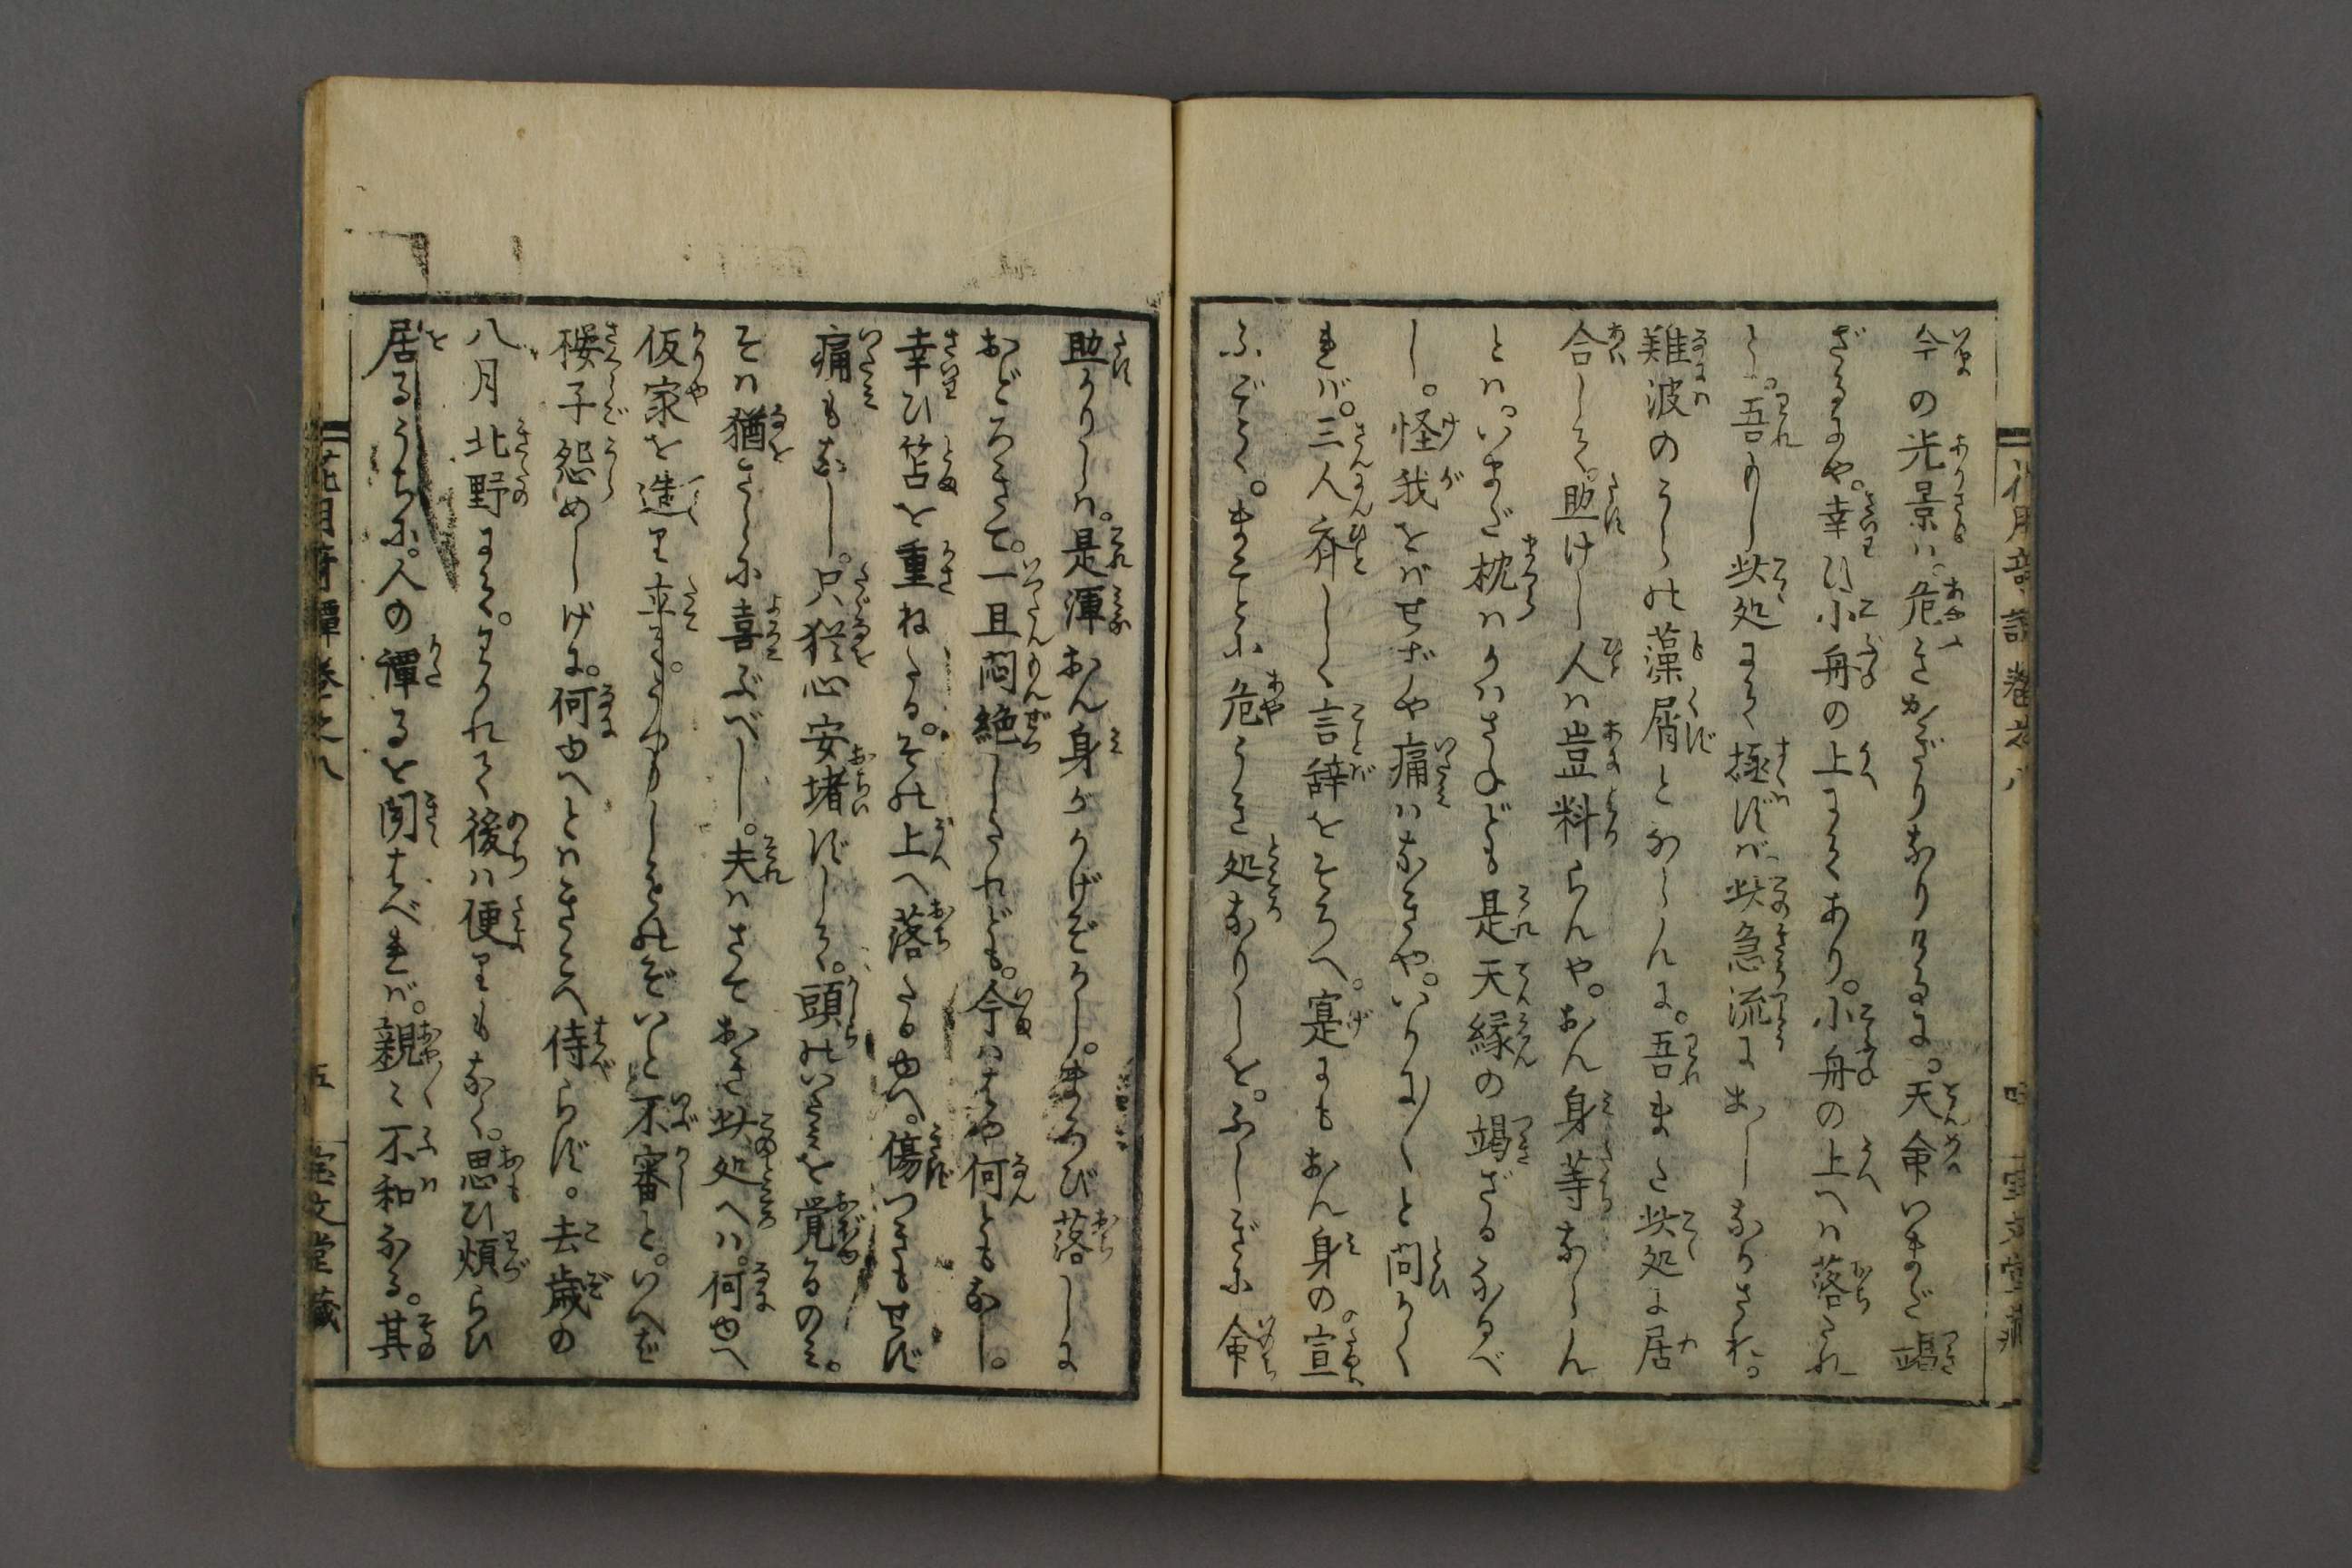 花月奇譚巻之八
四
宝文堂蔵
今の光景は。危きかぎりなりけるに。天命いまだ竭
ざるにや。幸ひ小舟の上にてあり。小舟の上へは落され
し。吾りし此処にて極ずば。此急流におしながされ。
難波のうらの藻屑とならんに。吾また此処に居
合して。助けし人は豈料らんや。おん身等ならん
とは。いまだ枕はかはさねども是天縁の竭ざるなるべ
し。怪我をばせずや痛はなきや。いかに〳〵と問かく
れば。三人斉しく言辞をそろへ。寔にもおん身の宣
ふごとく。まことに危うき処なりしを。ふしぎに命
助かりしは。是渾おん身がかげぞかし。まろび落しに
おどろきて。一旦悶絶したれども。今ははや何ともなし。
幸ひ苫を重ねたる。その上へ落たるゆへ。傷つきもせず
痛もなし。只猶心安堵ずして。頭のいたみを覚るのみ。
そは猶さらに喜ぶべし。夫はさておき此処へは。何ゆへ
仮家を造り立て。うつりしものぞいと不審と。いへば
桜子怨めしげに。何ゆへとはきこへ侍らず。去歳の
八月北野にて。わかれて後は便りもなく。思ひ煩らひ
居るうちに。人の譚るを聞はべれば。親々不和なる。其
花月奇譚巻之八
五
宝文堂蔵